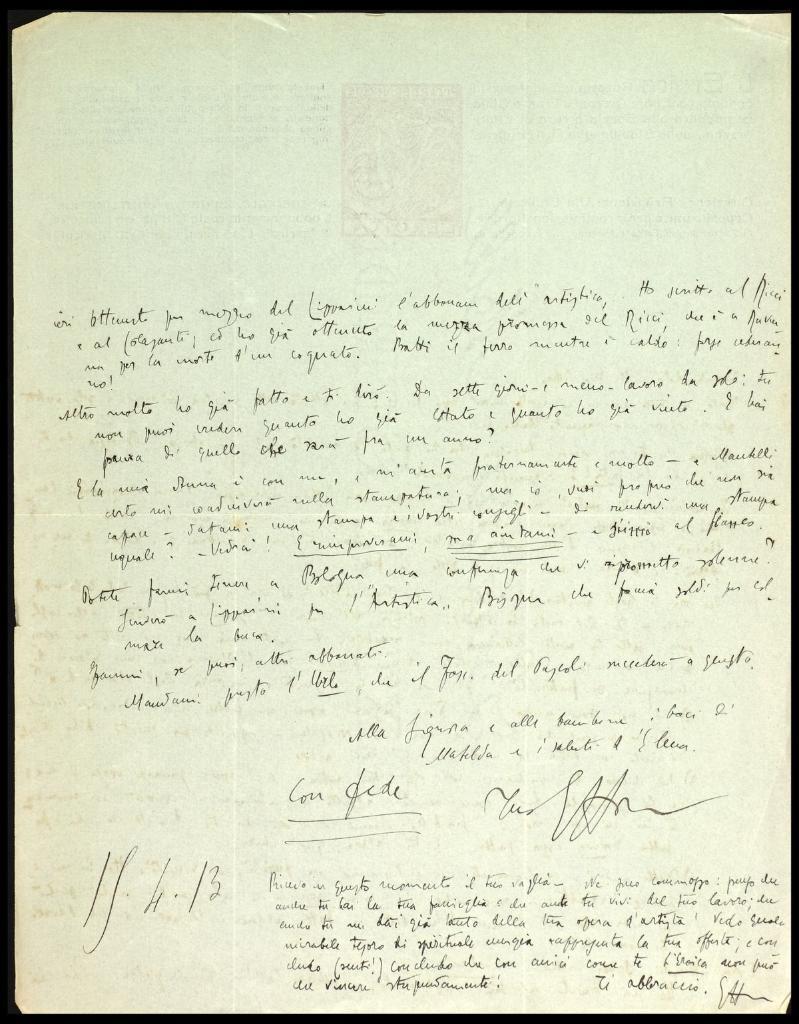 ieri ottenut per mezzo del Lipparini l'abbonam dell' "artistica,, Ho scritto al Ricci
e al Colasanti; ed ho già ottenuto la mezza promessa del Ricci, che è a Raven-
na per la morte d'un cognato. Batti il ferro mentre è caldo: forse cederan-
no!
Altro molto ho già fatto e ti dirò. Da sette giorni - e meno - lavoro da solo: tu
non puoi vedere quanto ho già e quanto ho già vinto. E hai
paura di quello che sarà fra un anno?
E la mia Anna è con me, e m'aiuta fraternamente e molto - e Mantelli
certo mi coadiuverà nella stampatura; ma io, vuoi proprio che non sia
capace - datami una stampa e i vostri consigli - di rendervi una stampa
uguale? - Vedrai! E rimproverami, ma aiutami - e al
Potete farmi tenere a Bologna una conferenza che vi prometto solenne?
a Lipparini per l'"Artistica,,. Bisogna che faccia soldi per col-
mare la buca.
Fammi, se puoi, altri abbonati.
Mandami presto l'Urlo, che il Fasc. del Pascoli succederà a questo.
Alla Signora e alle bambine i baci di
Matelda e i saluti d'Elena.
Con fede
Tuo
15.4.13
Ricevo in questo momento il tuo vaglia - Ne sono commosso: penso che
anche tu hai la tua famiglia e che anche tu vivi del tuo lavoro; che
anche tu mi dai già tanto della tua opera d'artista! Vedo quale
mirabile tesoro di spirituale energia rappresenta la tua offerta; e con
cludo (senti!) concludo che con amici come te l'Eroica non può
che vincere stupendamente! Ti abbraccio.